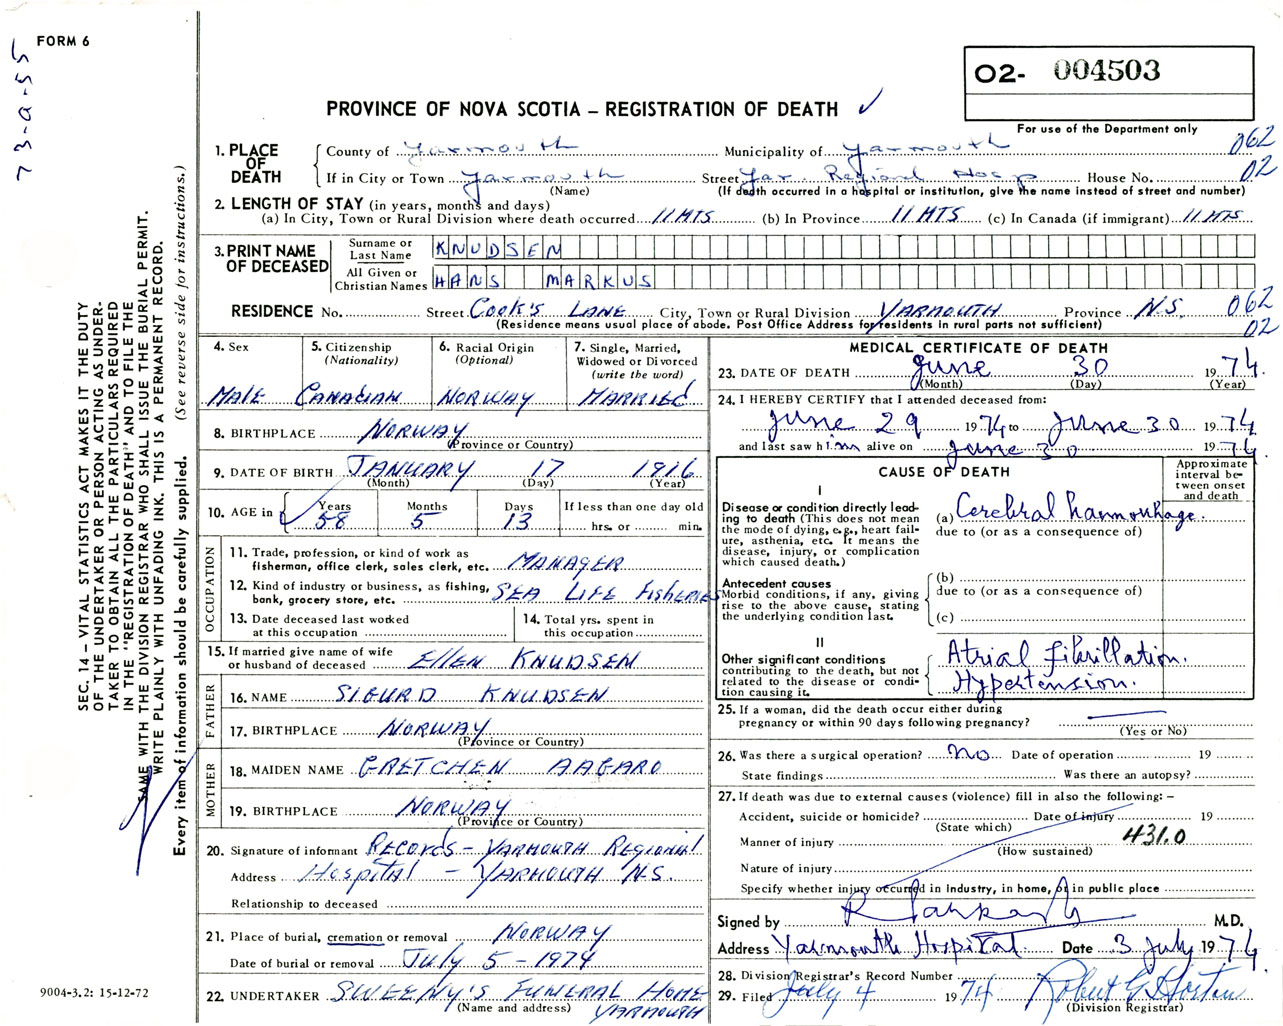 FORM 6
73-a-55
O2- 004503
PROVINCE OF NOVA SCOTIA – REGISTRATION OF DEATH ✓
For use of the Department only
062
02
1. PLACE OF DEATH
County of Yarmouth Municipality of Yarmouth
If in City or Town Yarmouth Street Yar. Regional Hosp House No.
(Name) (If death occurred in a hospital or institution, give the name instead of street and number)
2. LENGTH OF STAY (in years, months and days)
(a) In City, Town or Rural Division where death occurred 11 MTS (b) In Province 11 MTS (c) In Canada (if immigrant) 11 MTS
3. PRINT NAME OF DECEASED
Surname or Last Name KNUDSEN
All Given or Christian Names HANS MARKUS
RESIDENCE No. Street COOK'S LANE City, Town or Rural Division YARMOUTH Province N.S. 062
(Residence means usual place of abode. Post Office Address for residents in rural parts not sufficient) 02
4. Sex
Male
5. Citizenship (Nationality)
CANADIAN
6. Racial Origin (Optional)
NORWAY
7. Single, Married, Widowed or Divorced (write the word)
MARRIED
8. BIRTHPLACE NORWAY
(Province or Country)
9. DATE OF BIRTH JANUARY 17 1916
(Month) (Day) (Year)
10. AGE in
Years Months Days If less than one day old
58 5 13 hrs. or min.
OCCUPATION
11. Trade, profession, or kind of work as
fisherman, office clerk, sales clerk, etc. MANAGER
12. Kind of industry or business, as fishing,
bank, grocery store, etc. SEA LIFE FISHERIES
13. Date deceased last worked
at this occupation
14. Total yrs. spent in
this occupation
15. If married give name of wife
or husband of deceased ELLEN KNUDSEN
FATHER
16. NAME SIGURD KNUDSEN
17. BIRTHPLACE NORWAY
(Province or Country)
MOTHER
18. MAIDEN NAME GRETCHEN AAGARD
19. BIRTHPLACE NORWAY
(Province or Country)
20. Signature of informant RECORDS – YARMOUTH REGIONAL
Address Hospital – YARMOUTH N.S.
Relationship to deceased
21. Place of burial, cremation or removal NORWAY
Date of burial or removal July 5 – 1974
22. UNDERTAKER SWEENY'S FUNERAL HOME
(Name and address) YARMOUTH
MEDICAL CERTIFICATE OF DEATH
23. DATE OF DEATH June 30 1974.
(Month) (Day) (Year)
24. I HEREBY CERTIFY that I attended deceased from:
June 29 1974 to June 30 1974
and last saw him alive on June 30 1974.
CAUSE OF DEATH
Approximate interval between onset and death
I
Disease or condition directly leading to death (This does not mean the mode of dying, e.g., heart failure, asthenia, etc. It means the disease, injury, or complication which caused death.)
(a) Cerebral haemorrhage.
due to (or as a consequence of)
Antecedent causes
Morbid conditions, if any, giving rise to the above cause, stating the underlying condition last.
(b)
due to (or as a consequence of)
(c)
II
Other significant conditions contributing to the death, but not related to the disease or condition causing it.
Atrial fibrillation.
Hypertension.
25. If a woman, did the death occur either during
pregnancy or within 90 days following pregnancy?
(Yes or No)
26. Was there a surgical operation? No Date of operation 19
State findings Was there an autopsy?
27. If death was due to external causes (violence) fill in also the following: –
Accident, suicide or homicide? Date of injury 19
(State which)
Manner of injury 431.0
(How sustained)
Nature of injury
Specify whether injury occurred in industry, in home, or in public place
Signed by M.D.
Address Yarmouth Hospital. Date 3 July 1974
28. Division Registrar's Record Number
29. Filed July 4 1974 Robert G Horton
(Division Registrar)
SEC. 14 – VITAL STATISTICS ACT MAKES IT THE DUTY
OF THE UNDERTAKER OR PERSON ACTING AS UNDER-
TAKER TO OBTAIN ALL THE PARTICULARS REQUIRED
IN THE "REGISTRATION OF DEATH" AND TO FILE THE
SAME WITH THE DIVISION REGISTRAR WHO SHALL ISSUE THE BURIAL PERMIT.
WRITE PLAINLY WITH UNFADING INK. THIS IS A PERMANENT RECORD.
Every item of information should be carefully supplied. (See reverse side for instructions.)
9004-3.2: 15-12-72